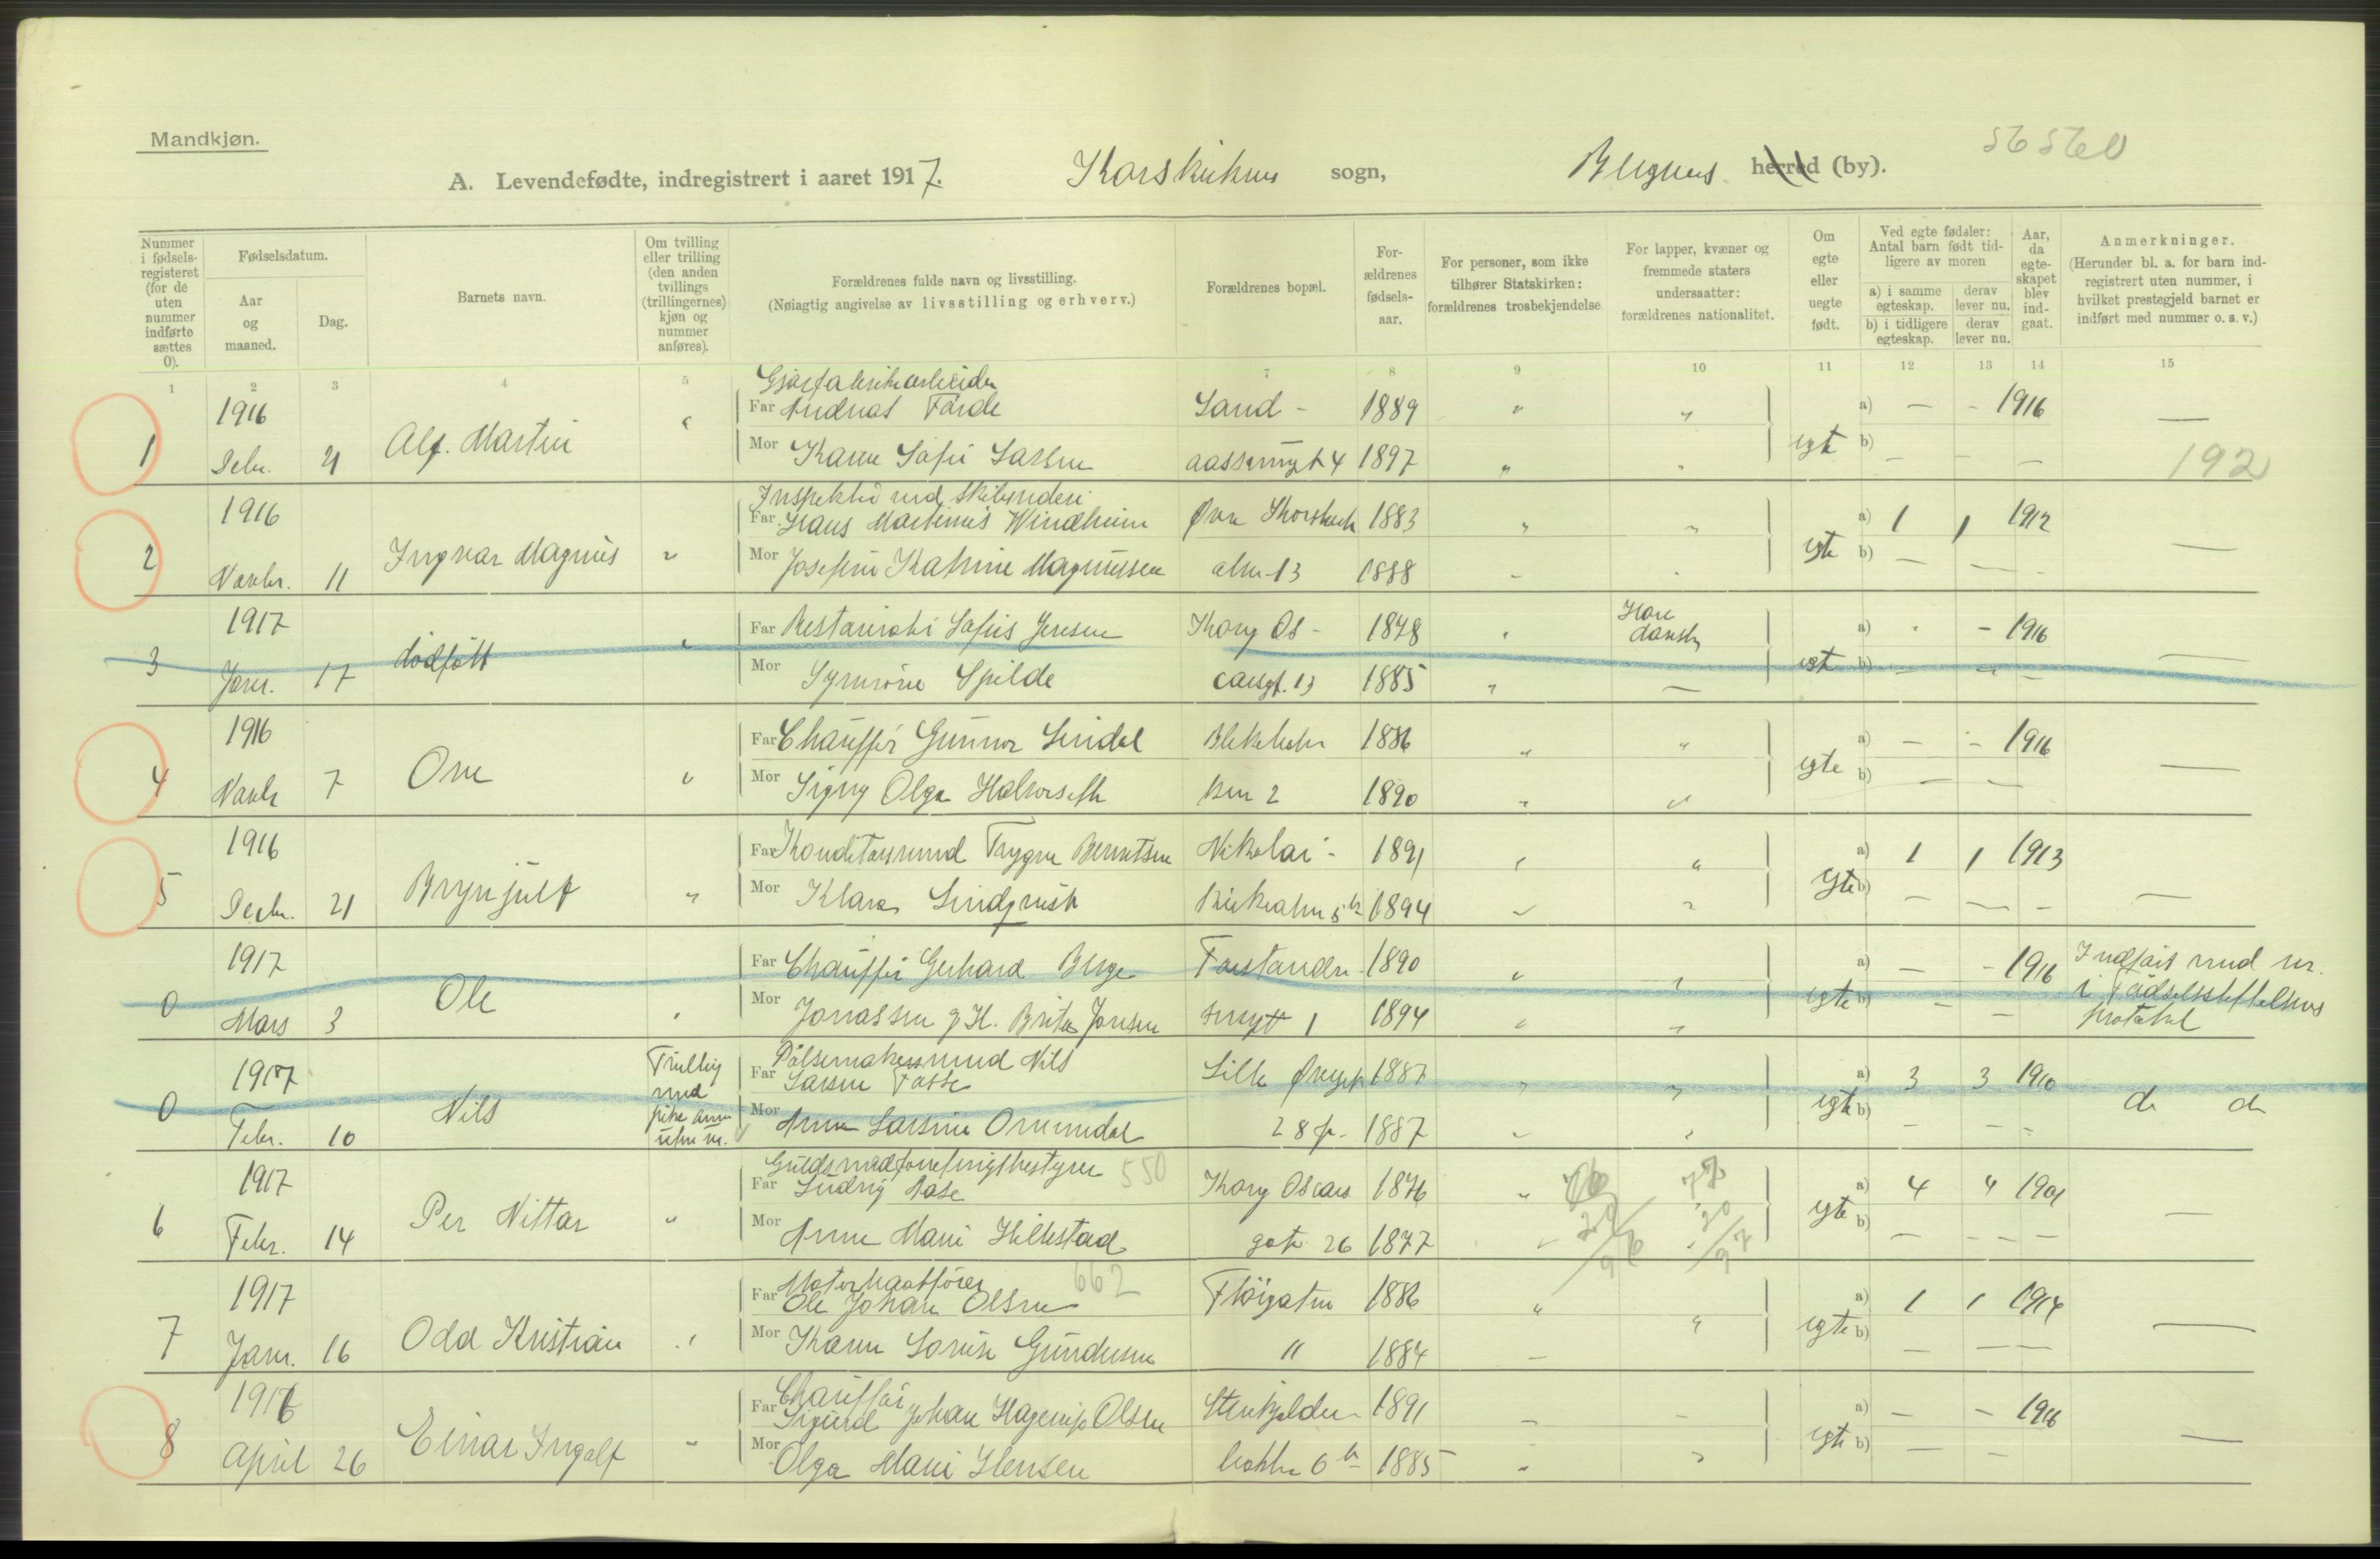 Mandkjøn.
56560
A. Levendefødte, indregistrert i aaret 1917. Korskirkens sogn, Bergens herred (by).
Nummer i fødselsregisteret (for de uten nummer indførte sættes 0).
Fødselsdatum.
Aar og maaned.
Dag.
Barnets navn.
Om tvilling eller trilling (den anden tvillings (trillingernes) kjøn og nummer anføres).
Forældrenes fulde navn og livsstilling.
(Nøiagtig angivelse av livsstilling og erhverv.)
Forældrenes bopæl.
Forældrenes fødselsaar.
For personer, som ikke tilhører Statskirken: forældrenes trosbekjendelse
For lapper, kvæner og fremmede staters undersaatter: forældrenes nationalitet.
Om egte eller uegte født.
Ved egte fødsler: Antal barn født tidligere av moren
a) i samme egteskap.
derav lever nu.
b) i tidligere egteskap.
derav lever nu.
Aar, da egteskapet blev indgaat.
Anmerkninger.
(Herunder bl. a. for barn indregistrert uten nummer, i hvilket prestegjeld barnet er indført med nummer o. s. v.)
1 2 3 4 5 7 8 9 10 11 12 13 14 15
Gjærfabrikarbeider
1916 Far Andreas Førde Sand - 1889 " " a) — - 1916 —
1 Decbr. 21 Alf. Martin " Mor Karen Sofie Larsen aassmugt 4 1897 " " egte b) — — — 192
Inspektør ved skibsrederi
1916 Far Hans Martinus Windheim Øvre Korskirk 1883 " " a) 1 1 1912
2 Novbr. 11 Ingvar Magnus " Mor Josefine Katrine Magnussen alm 13 1888 - - egte b) — — - —
1917 Far Restauratør Sofus Jensen Kong Os - 1878 " Han dansk a) - - 1916
3 Janr. 17 dødfødt " Mor Synnøve Spilde carsgt. 13 1885 " — egte b) — — — —
1916 Far Chauffør Gunnar Lindal Blekehola 1886 " " a) — - 1916
4 Novbr 7 Ove " Mor Signy Olga Halvorseth 2 1890 " " egte b) — — —
1916 Far Konditorsvend Trygve Berentsen Nikolai - 1891 " " a) 1 1 1913
5 Decbr. 21 Brynjulf " Mor Klara Lindqvist Kirkealm 5 b 1894 " " egte b) — — - —
1917 Far Chauffør Gerhard Berge Forstander 1890 " " a) — - 1916 Indført med nr.
0 Mars 3 Ole " Mor Jonassen g. H. Brita Jonsen smugt 1 1894 " " egte b) — — i Fødselsstiftelsens
protokol
Pølsemakersvend Nils
1917 Tvilling Far Larsen Fosse Lille Øvregt 1887 " " a) 3 3 1910
0 Febr. 10 Nils med pike Anna uten nr. Mor Anna Larsine Ommundal 28 1887 " " egte b) — — - do do
Guldsmedforretningsbestyrer 550
1917 Far Ludvig Aase Kong Oscars 1876 " 76 77 a) 4 4 1901
6 Febr. 14 Per Nittar " Mor Anna Marie Hillestad gate 26 1877 " 20 96 " 20 97 egte b) — — — — —
Motorbaatfører 662
1917 Far Ole Johan Olsen Fløigaten 1886 " " a) 1 1 1914
7 Janr. 16 Odd Kristian " Mor Karen Lovise Gundersen " 1884 — egte b) — — — —
Chauffør
1916 Far Sigurd Johan Hagerup Olsen Stenkjelder 1891 - - a) — - 1916
8 April 26 Einar Ingolf " Mor Olga Marie Jensen bakken 6 b 1885 " " egte b) — — —